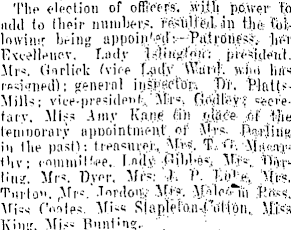 The election of officers, with power to
add to their numbers, resulted in the fol-
lowing being appointed:—Patroness, her
Excellency, Lady Islington; president,
Mrs. Garlick (vice Lady Ward, who has
resigned); general inspector, Dr. Platts-
Mills; vice-president, Mrs. Godley; secre-
tary, Miss Amy Kane (in place of the
temporary appointment of Mrs. Darling
in the past); treasurer, Mrs. T. G. Macar-
thy; committee, Lady Gibbes, Mrs. Dar-
ling, Mrs. Dyer, Mrs. J. P. Luke, Mrs.
Turton, Mrs. Jordon, Mrs. Malcolm Ross,
Miss Coates, Miss Stapleton-Cotton, Miss
King, Miss Bunting.